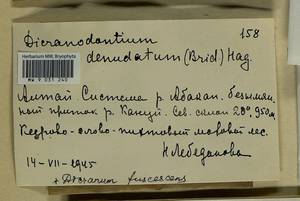 158
Dicranodontium
denudatum (Brid) Hag.
Herbarium MW, Bryophyta
MW 9 031 240
Алтай Система р. Абакан. безымян
ный приток р. Каируи. Сев. склон 28°, 950 м.
Кедрово-елово-пихтовый моховой лес.
Н Лебединова
14-VII-1945
+ Dicranum fuscescens